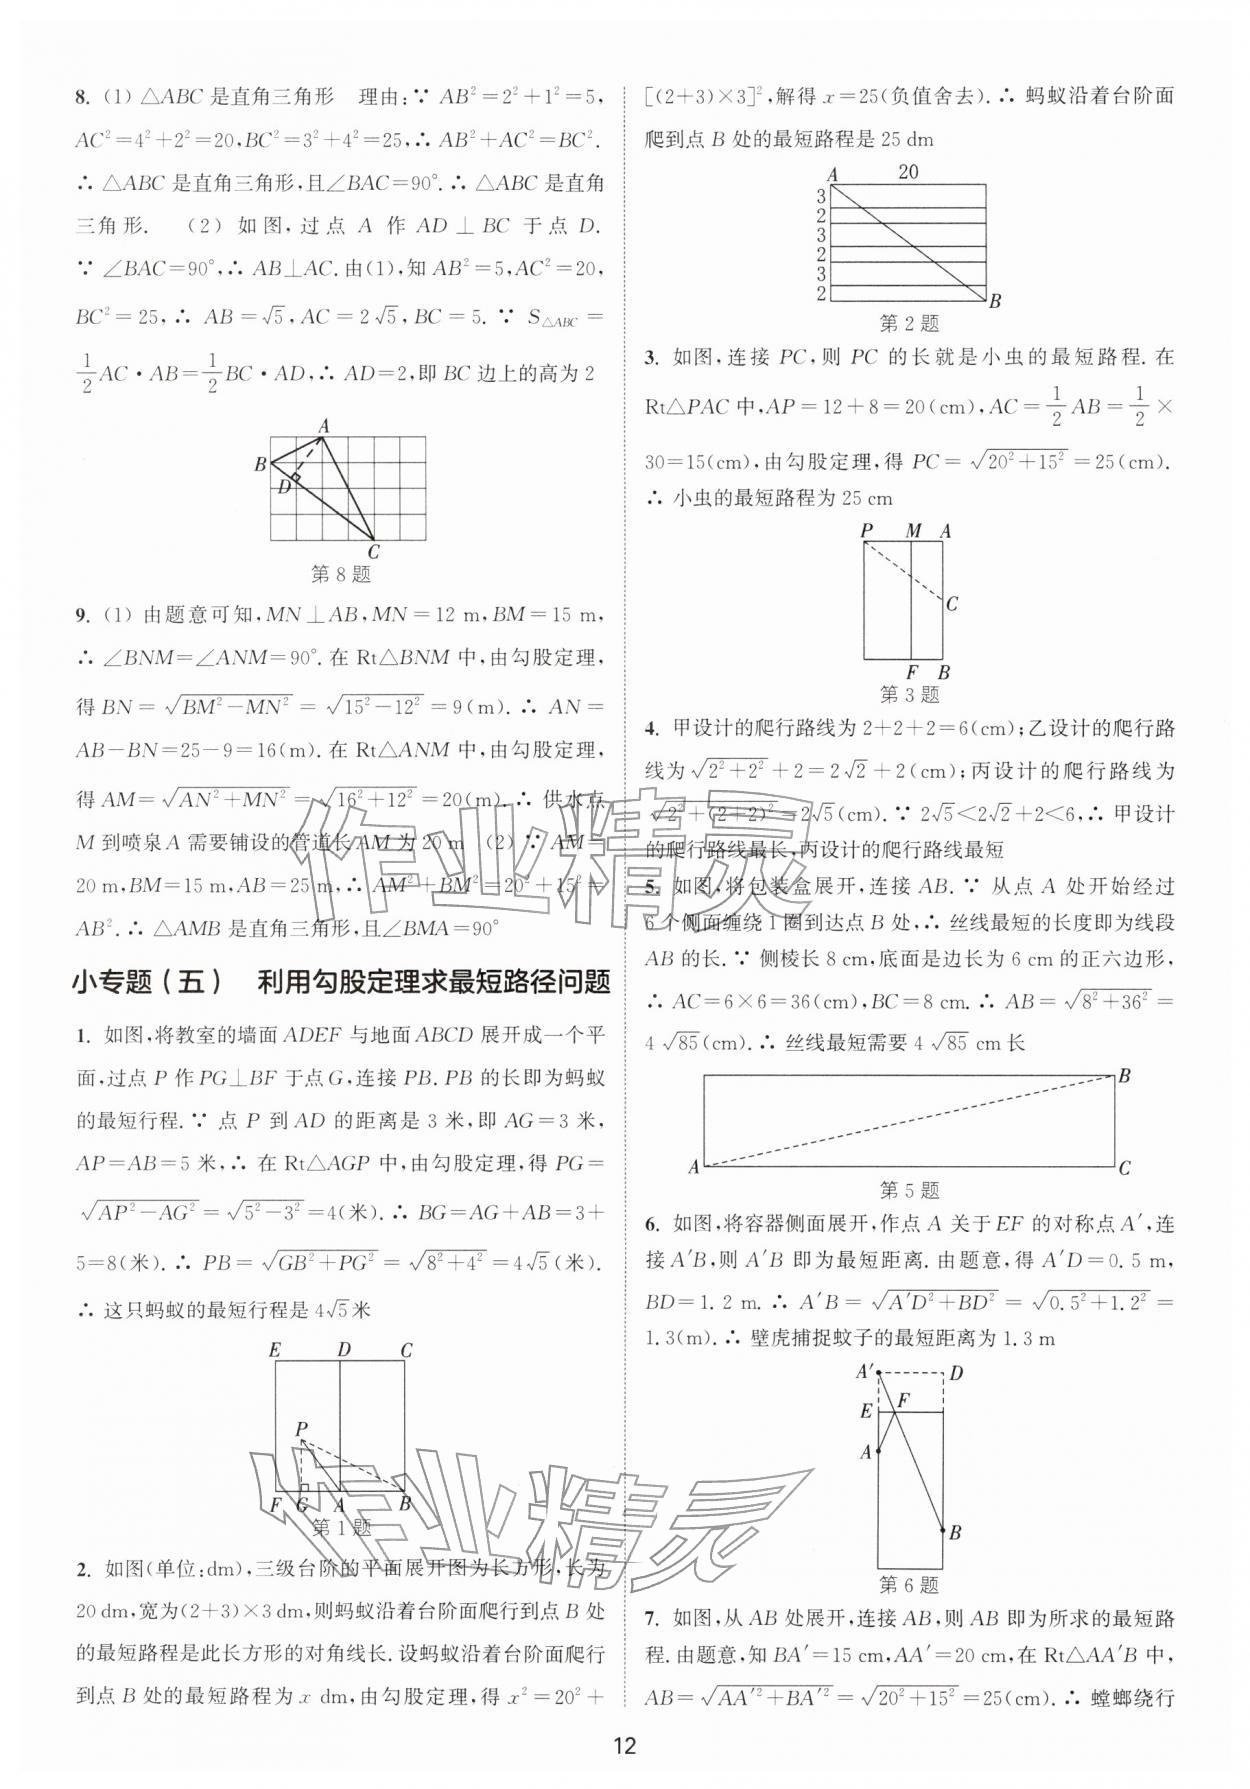 8. (1) △ABC 是直角三角形　理由:∵ AB²=2²+1²=5,
AC²=4²+2²=20,BC²=3²+4²=25,∴ AB²+AC²=BC².
∴ △ABC 是直角三角形,且∠BAC=90°.∴ △ABC 是直角
三角形.　(2) 如图,过点 A 作 AD⊥BC 于点 D.
∵ ∠BAC=90°,∴ AB⊥AC.由(1),知 AB²=5,AC²=20,
BC²=25,∴ AB=√5,AC=2√5,BC=5.∵ S△ABC=
1/2 AC·AB=1/2 BC·AD,∴ AD=2,即 BC 边上的高为 2
A
B
D
C
第 8 题
9. (1) 由题意可知,MN⊥AB,MN=12 m,BM=15 m,
∴ ∠BNM=∠ANM=90°.在 Rt△BNM 中,由勾股定理,
得 BN=√(BM²-MN²)=√(15²-12²)=9(m).∴ AN=
AB-BN=25-9=16(m).在 Rt△ANM 中,由勾股定理,
得 AM=√(AN²+MN²)=√(16²+12²)=20(m).∴ 供水点
M 到喷泉 A 需要铺设的管道长 AM 为 20 m　(2) ∵ AM=
20 m,BM=15 m,AB=25 m,∴ AM²+BM²=20²+15²=
AB².∴ △AMB 是直角三角形,且∠BMA=90°
小专题(五)　利用勾股定理求最短路径问题
1. 如图,将教室的墙面 ADEF 与地面 ABCD 展开成一个平
面,过点 P 作 PG⊥BF 于点 G,连接 PB.PB 的长即为蚂蚁
的最短行程.∵ 点 P 到 AD 的距离是 3 米,即 AG=3 米,
AP=AB=5 米,∴ 在 Rt△AGP 中,由勾股定理,得 PG=
√(AP²-AG²)=√(5²-3²)=4(米).∴ BG=AG+AB=3+
5=8(米).∴ PB=√(GB²+PG²)=√(8²+4²)=4√5(米).
∴ 这只蚂蚁的最短行程是 4√5米
E D C
P
F G A B
第 1 题
2. 如图(单位:dm),三级台阶的平面展开图为长方形,长为
20 dm,宽为(2+3)×3 dm,则蚂蚁沿着台阶面爬行到点 B 处
的最短路程是此长方形的对角线长.设蚂蚁沿着台阶面爬行
到点 B 处的最短路程为 x dm,由勾股定理,得 x²=20²+
[(2+3)×3]²,解得 x=25(负值舍去).∴ 蚂蚁沿着台阶面
爬到点 B 处的最短路程是 25 dm
A 20
3
2
3
2
3
2
B
第 2 题
3. 如图,连接 PC,则 PC 的长就是小虫的最短路程.在
Rt△PAC 中,AP=12+8=20(cm),AC=1/2 AB=1/2×
30=15(cm),由勾股定理,得 PC=√(20²+15²)=25(cm).
∴ 小虫的最短路程为 25 cm
P M A
C
F B
第 3 题
4. 甲设计的爬行路线为 2+2+2=6(cm);乙设计的爬行路
线为√(2²+2²)+2=2√2+2(cm);丙设计的爬行路线为
√(2²+(2+2)²)=2√5(cm).∵ 2√5<2√2+2<6,∴ 甲设计
的爬行路线最长,丙设计的爬行路线最短
5. 如图,将包装盒展开,连接 AB.∵ 从点 A 处开始经过
6 个侧面缠绕 1 圈到达点 B 处,∴ 丝线最短的长度即为线段
AB 的长.∵ 侧棱长 8 cm,底面是边长为 6 cm 的正六边形,
∴ AC=6×6=36(cm),BC=8 cm.∴ AB=√(8²+36²)=
4√85(cm).∴ 丝线最短需要 4√85 cm长
B
A
C
第 5 题
6. 如图,将容器侧面展开,作点 A 关于 EF 的对称点 A′,连
接 A′B,则 A′B 即为最短距离.由题意,得 A′D=0.5 m,
BD=1.2 m.∴ A′B=√(A′D²+BD²)=√(0.5²+1.2²)=
1.3(m).∴ 壁虎捕捉蚊子的最短距离为 1.3 m
A′ D
E F
A
B
第 6 题
7. 如图,从 AB 处展开,连接 AB,则 AB 即为所求的最短路
程.由题意,知 BA′=15 cm,AA′=20 cm,在 Rt△AA′B 中,
AB=√(AA′²+BA′²)=√(20²+15²)=25(cm).∴ 螳螂绕行
12
作业精灵
作业精灵